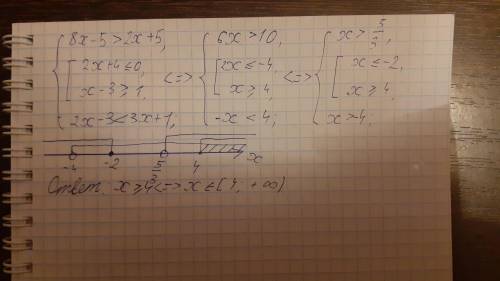 { 8x-5>2x+5, [ 2x+4≤0, x-3≥1, 2x-3<3x+1, <=> { 6x>10, [ 2x≤-4, x≥4, -x<4, <=> { x>5/3, [ x≤-2, x≥4, x>-4.
-4 -2 5/3 4 x
Ответ. x≥4<=>x∈[4, +∞)